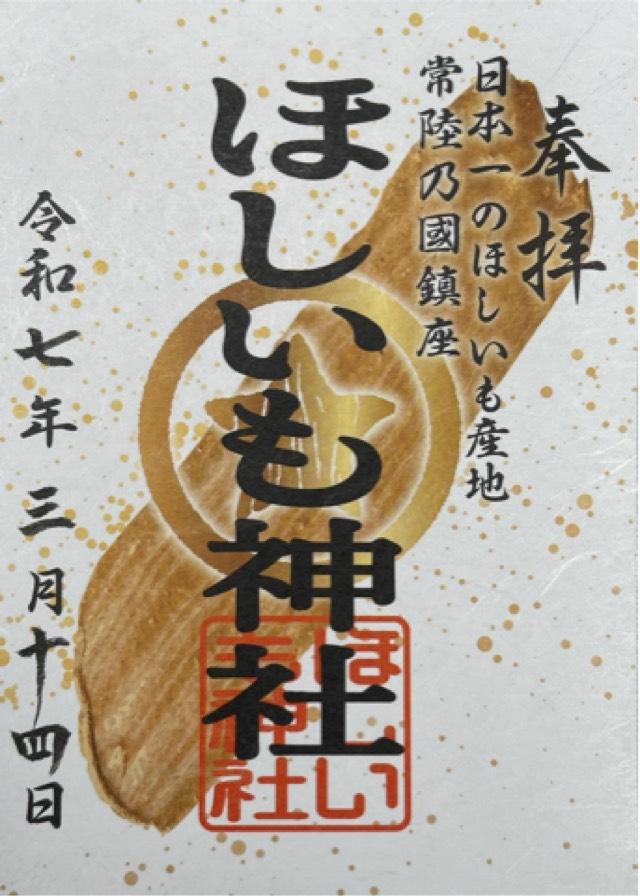 奉拝
日本一のほしいも産地
常陸乃國鎮座
ほしいも神社
ほしい
も神社
令和七年三月十四日